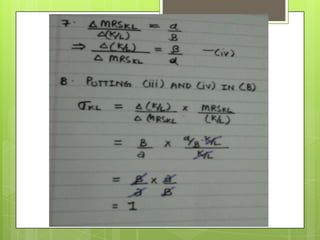 7. Δ MRS_KL / Δ(K/L) = α / β
⇒ Δ(K/L) / Δ MRS_KL = β / α —(iv)
8. PUTTING (iii) AND (iv) IN (B)
σ_KL = Δ(K/L) / Δ MRS_KL × MRS_KL / (K/L)
= β / α × α/β K/L / K/L
= β / α × α / β
= 1